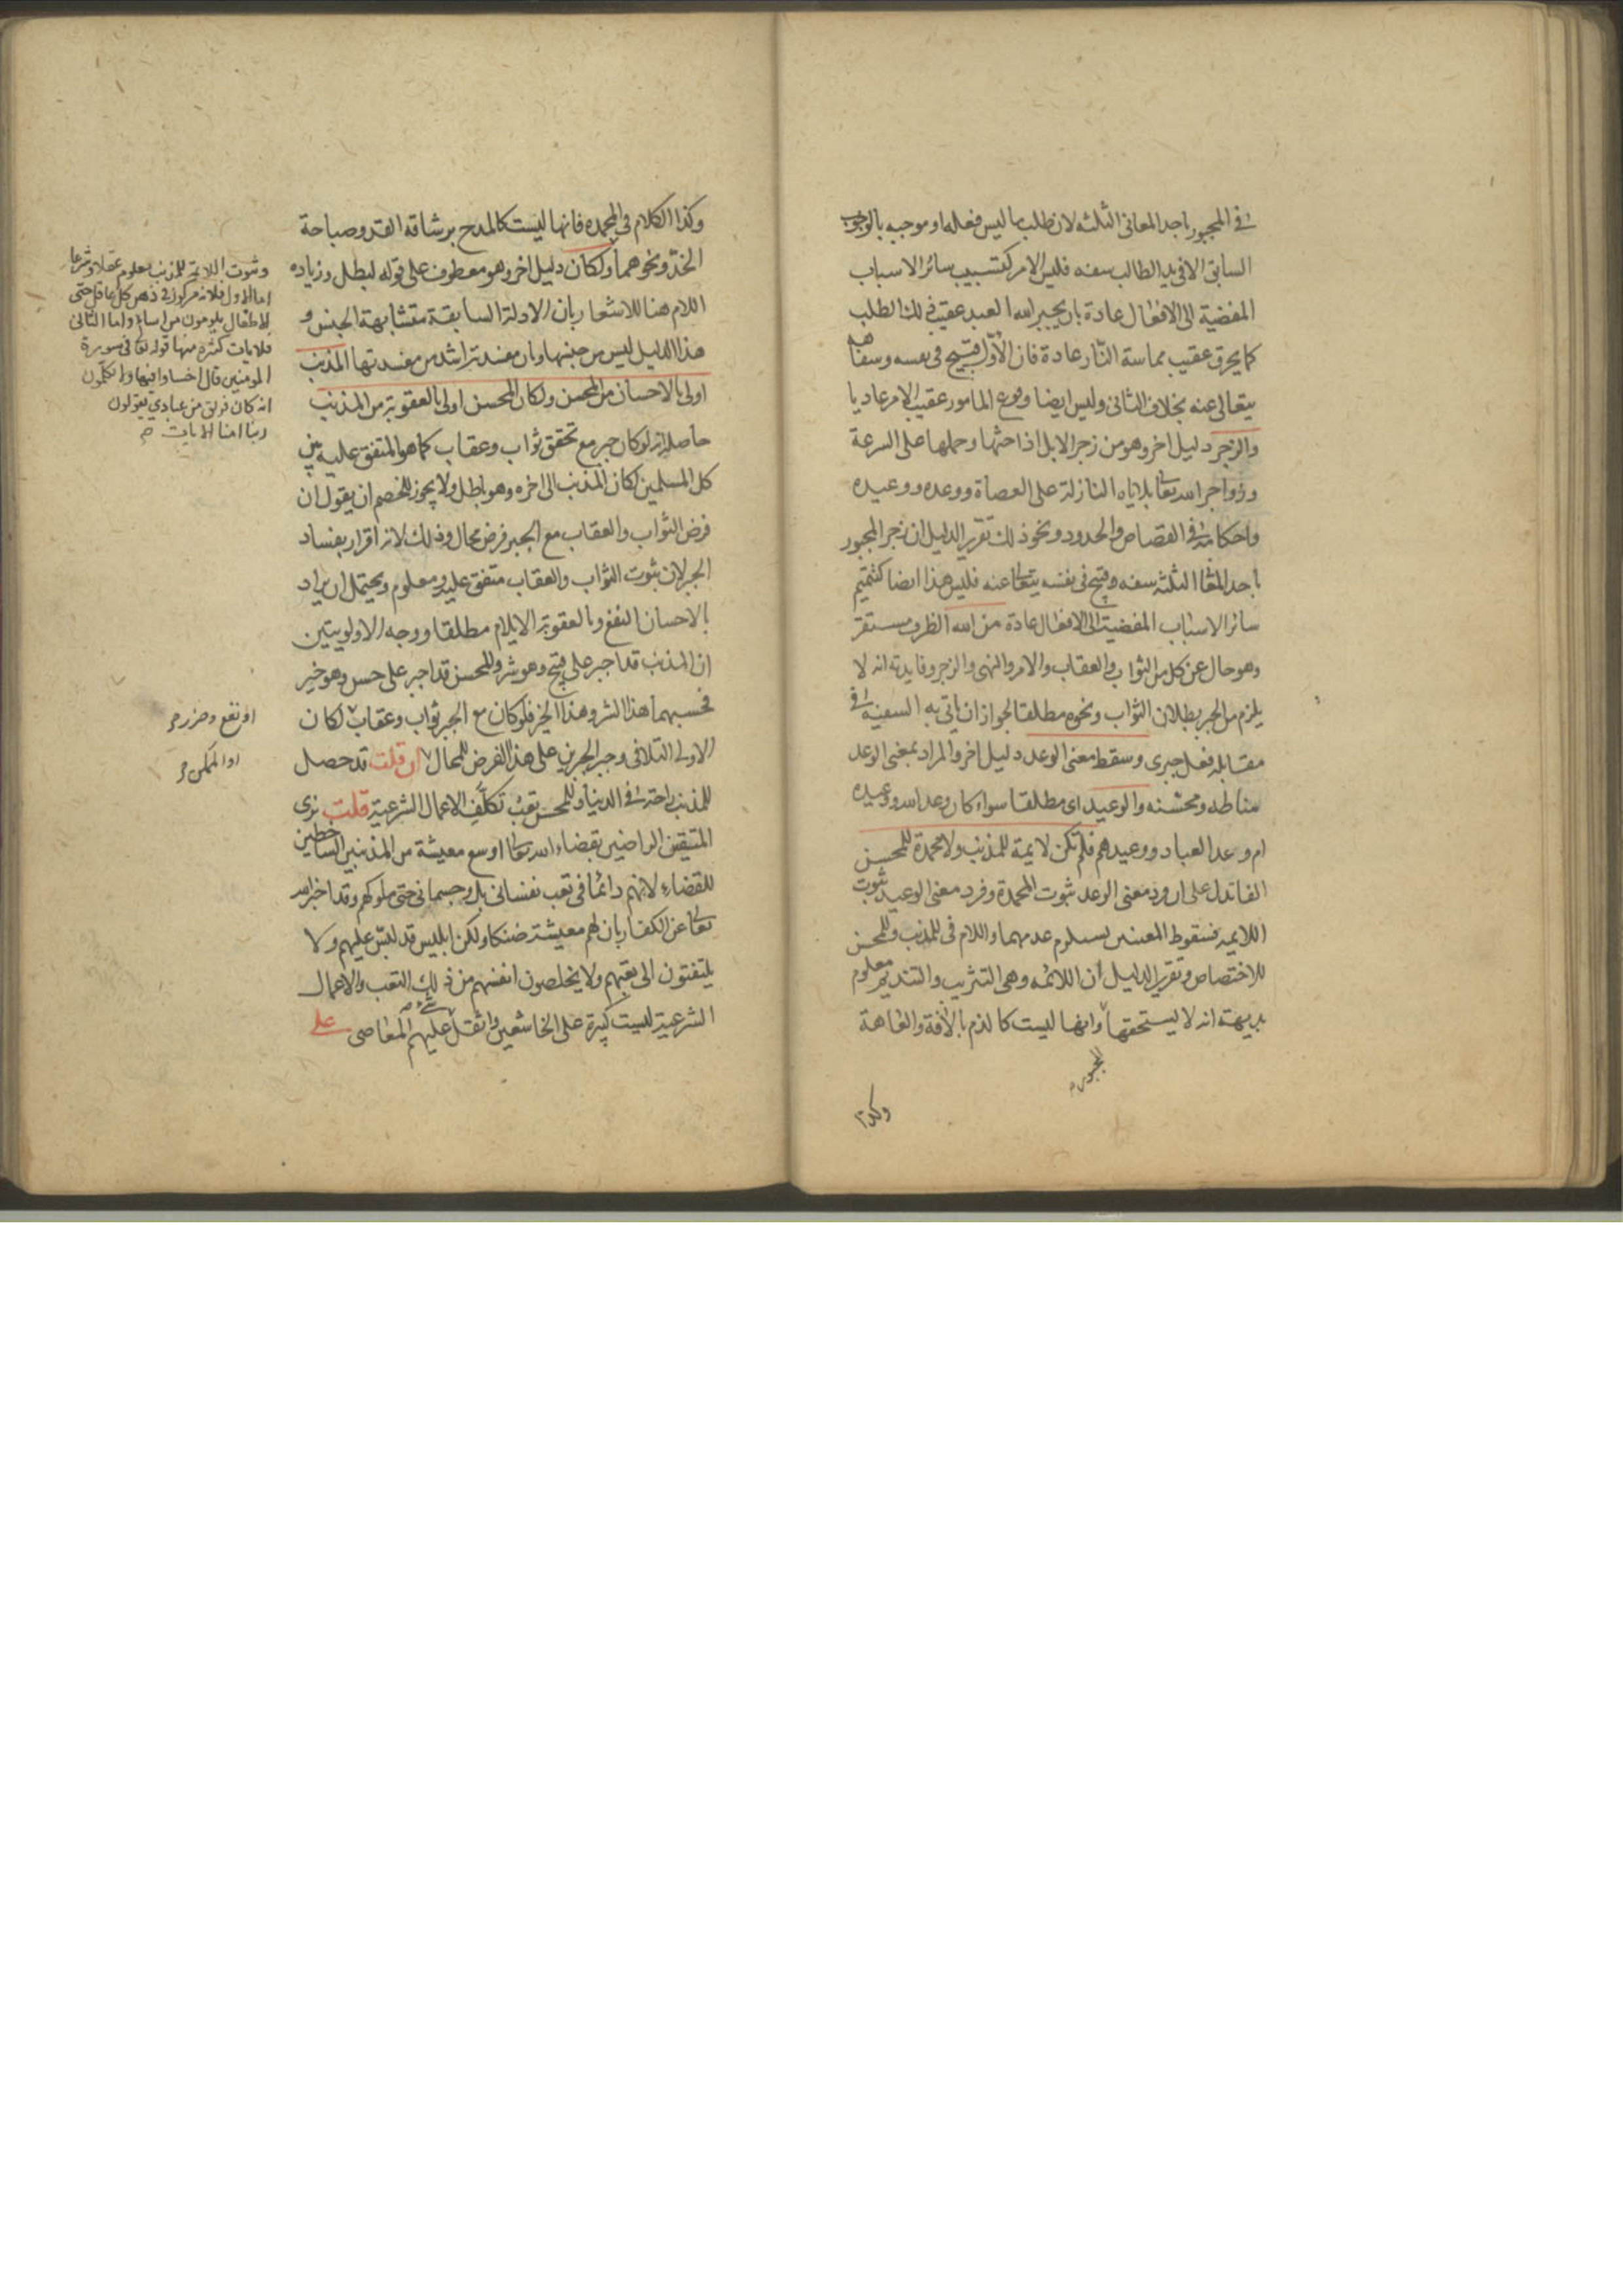 في المجبور باحد المعاني الثلثة لان طلب ما ليس فعله او موجبه بالوجوب
السابق الا في يد الطالب سفه فليس الامر كتسبيب سائر الاسباب
المفضية الى الافعال عادة بان يجبر الله العبد عقيب ذلك الطلب
كما يحرق عقيب مماسة النار عادة فان الاول قبيح في نفسه وسفاهة
يتعالى عنه بخلاف الثاني وليس ايضا وقوع المامور عقيب الامر عاديا
والزجر دليل اخر وهو من زجر الابل اذا حثها وحملها على السرعة
وزواجر الله تعا بلاياه النازلة على العصاة ووعده ووعيده
واحكامه في القصاص والحدود ونحو ذلك تقرير الدليل ان زجر المجبور
باحد المعا الثلثة سفه وقبيح في نفسه يتعا عنه فليس هذا ايضا كتتميم
سائر الاسباب المفضية الى الافعال عادة من الله الظرف مستقر
وهو حال عن كل من الثواب والعقاب والامر والنهي والزجر وفايدته انه لا
يلزم من الجبر بطلان الثواب ونحوه مطلقا لجواز ان ياتي به السفيه في
مقابلة فعل جبري وسقط معنى الوعد دليل اخر والمراد بمعنى الوعد
مناطه ومحسنه والوعيد اى مطلقا سواء كان وعد الله ووعيده
ام وعد العباد ووعيدهم فلم تكن لايمة للمذنب ولا محمدة للمحسن
الفا تدل على ان ود معنى الوعد ثبوت المحمدة وفرد معنى الوعيد ثبوت
اللايمة فسقوط المعنيين يستلزم عدمهما واللام في للمذنب وللمحسن
للاختصاص وتقرير الدليل ان اللائمة وهي التثريب والتنديم معلوم
بديهة انه لا يستحقها وانها ليست كالذم بالافة والعاهة
المجبور
وكذا
وكذا الكلام في المحمدة فانها ليست كالمدح برشاقة القد وصباحة
الخد ونحوهما ولكان دليل اخر وهو معطوف على قوله لبطل وزيادة
اللام هنا للاشعار بان الادلة السابقة متشابهة الجنس و
هذا الدليل ليس من جنسها وان مفسدته اشد من مفسدتها المذنب
اولى بالاحسان من المحسن ولكان المحسن اولى بالعقوبة من المذنب
حاصله انه لو كان جبر مع تحقق ثواب وعقاب كما هو المتفق عليه بين
كل المسلمين لكان المذنب الى اخره وهو باطل ولا يجوز للخصم ان يقول ان
فرض الثواب والعقاب مع الجبر فرض محال وذلك لانه اقرار بفساد
الجبر لان ثبوت الثواب والعقاب متفق عليه ومعلوم ويحتمل ان يراد
بالاحسان النفع وبالعقوبة الايلام مطلقا ووجه الاولويتين
ان المذنب قد اجبر على قبيح وهو شر وللمحسن قد اجبر على حسن وهو خير
فحسبهما هذا الشر وهذا الخير فلو كان مع الجبر ثواب وعقاب لكان
الاولى التلافي وجبر الجبرين على هذا الفرض المحال ان قلت قد حصل
للمذنب راحته في الدنيا وللمحسن تعب تكلف الاعمال الشرعية قلت نرى
المتيقين الراضين بقضاء الله تعا اوسع معيشة من المذنبين الساخطين
للقضاء لانهم دائما في تعب نفساني بل وجسماني حتى ملوكهم وقد اخبر الله
تعا عن الكفار بان لهم معيشة ضنكا ولكن ابليس قد لبس عليهم ولا
يلتفتون الى تعبهم ولا يخلصون انفسهم من ذلك التعب والاعمال
الشرعية ليست كبيرة على الخاشعين واثقل عليهم المعاصي على
وثبوت اللايمة للمذنب معلوم عقلا وشرعا
اما الاول فلانه مركوز في ذهن كل عاقل حتى
الاطفال يلومون من اساء واما الثاني
فلايات كثيرة منها قوله تعا في سورة
المومنين قال اخسئوا فيها ولا تكلمون
انه كان فريق من عبادي يقولون
ربنا امنا الايات
او نفع وضرر
او الممكن